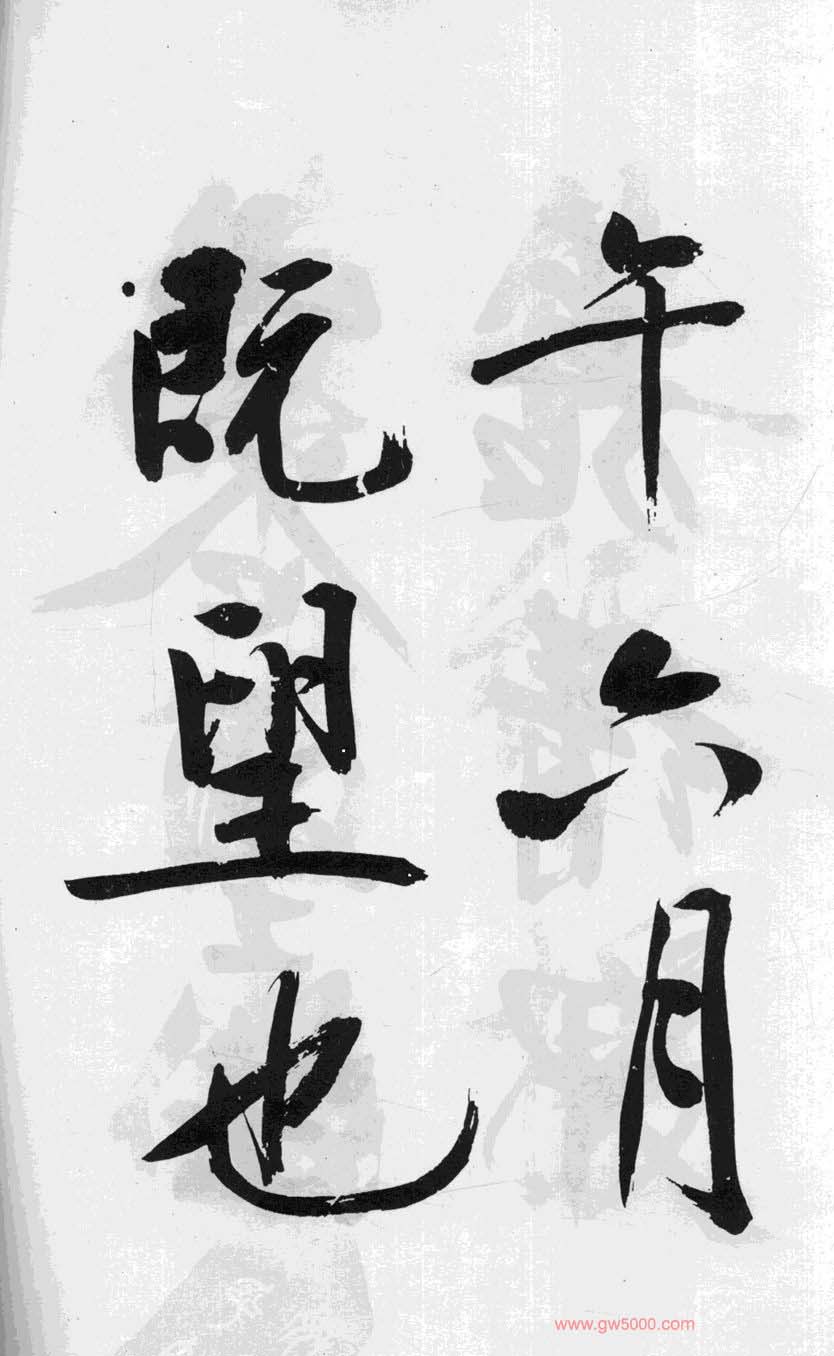 午六月
既望也
www.gw5000.com